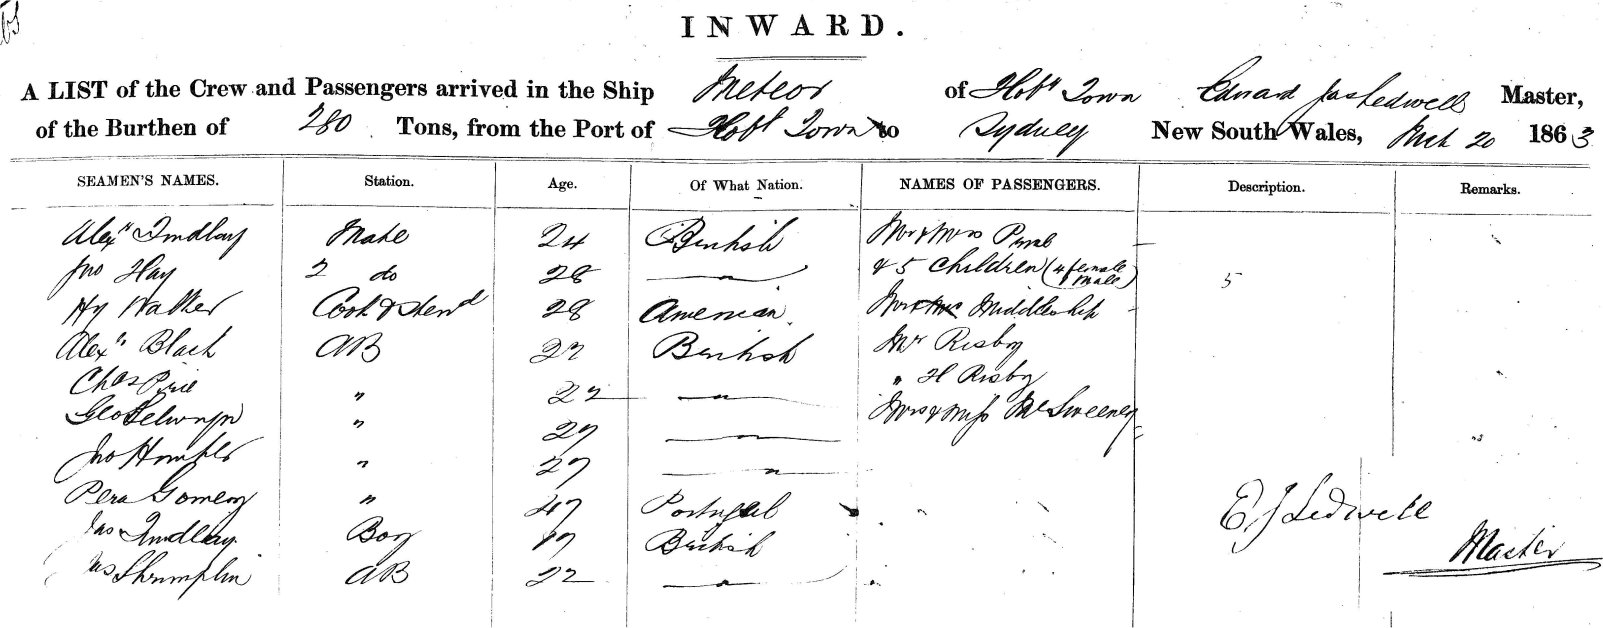 INWARD.
A LIST of the Crew and Passengers arrived in the Ship Meteor of Hobt Town Edward Jas Ledwell Master,
of the Burthen of 280 Tons, from the Port of Hobt Town to Sydney New South Wales, Mch 20 1863
SEAMEN'S NAMES. Station. Age. Of What Nation. NAMES OF PASSENGERS. Description. Remarks.
Alexr Findlay Mate 24 British Mr & Mrs
Jno Hay 2 do 28 — " — & 5 Children (4 female 1 male) 5
Hy Walker Cook & Stewd 28 American Middleship
Alexr Black AB 22 British Mr Risby
Chas " 22 — " — " H Risby
Geo Selwyn " 27 — " — Mrs & Miss McSweeney
Jno " 27 — " —
Gomez " 47 Portugal
Jas Findlay Boy 17 British
Jas Shrimplin AB 22 — " —
E J Ledwell
Master